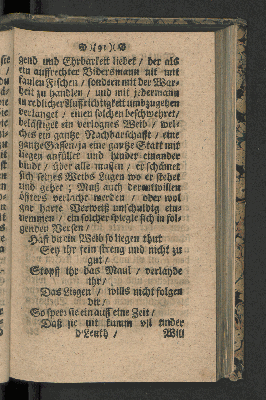 )( 91 )(
gend und Ehrbarkeit liebet / der als
ein auffrechter Bidersmann nit mit
faulen Fischen / sondern mit der War-
heit zu handlen / und mit jederman
in redlicher Auffrichtigkeit umbzugehen
verlanget / einen solchen beschweyret /
belästiget ein verlognes Weib / wel-
ches ein gantze Nachbarschafft / eine
gantze Gassen / ja eine gantze Statt mit
liegen anfüllet und hinder einander
bindt / über alle massen / er schämet
sich seines Weibs Lugen wo er stehet
und gehet ; Muß auch derentwillen
öffters verlacht werden / oder wol
gar harte Verweiß unschuldig ein-
nemmen / ein solcher spiegle sich in fol-
genden Versen /
Hast du ein Weib so liegen thut
Sey ihr fein streng und nicht zu
gut /
Stopff ihr das Maul / verlayde
ihr /
Das Liegen / wills nicht folgen
dir /
So sperr sie ein auff eine Zeit /
Daß sie nit kumm vil under
d'Leuth / Will